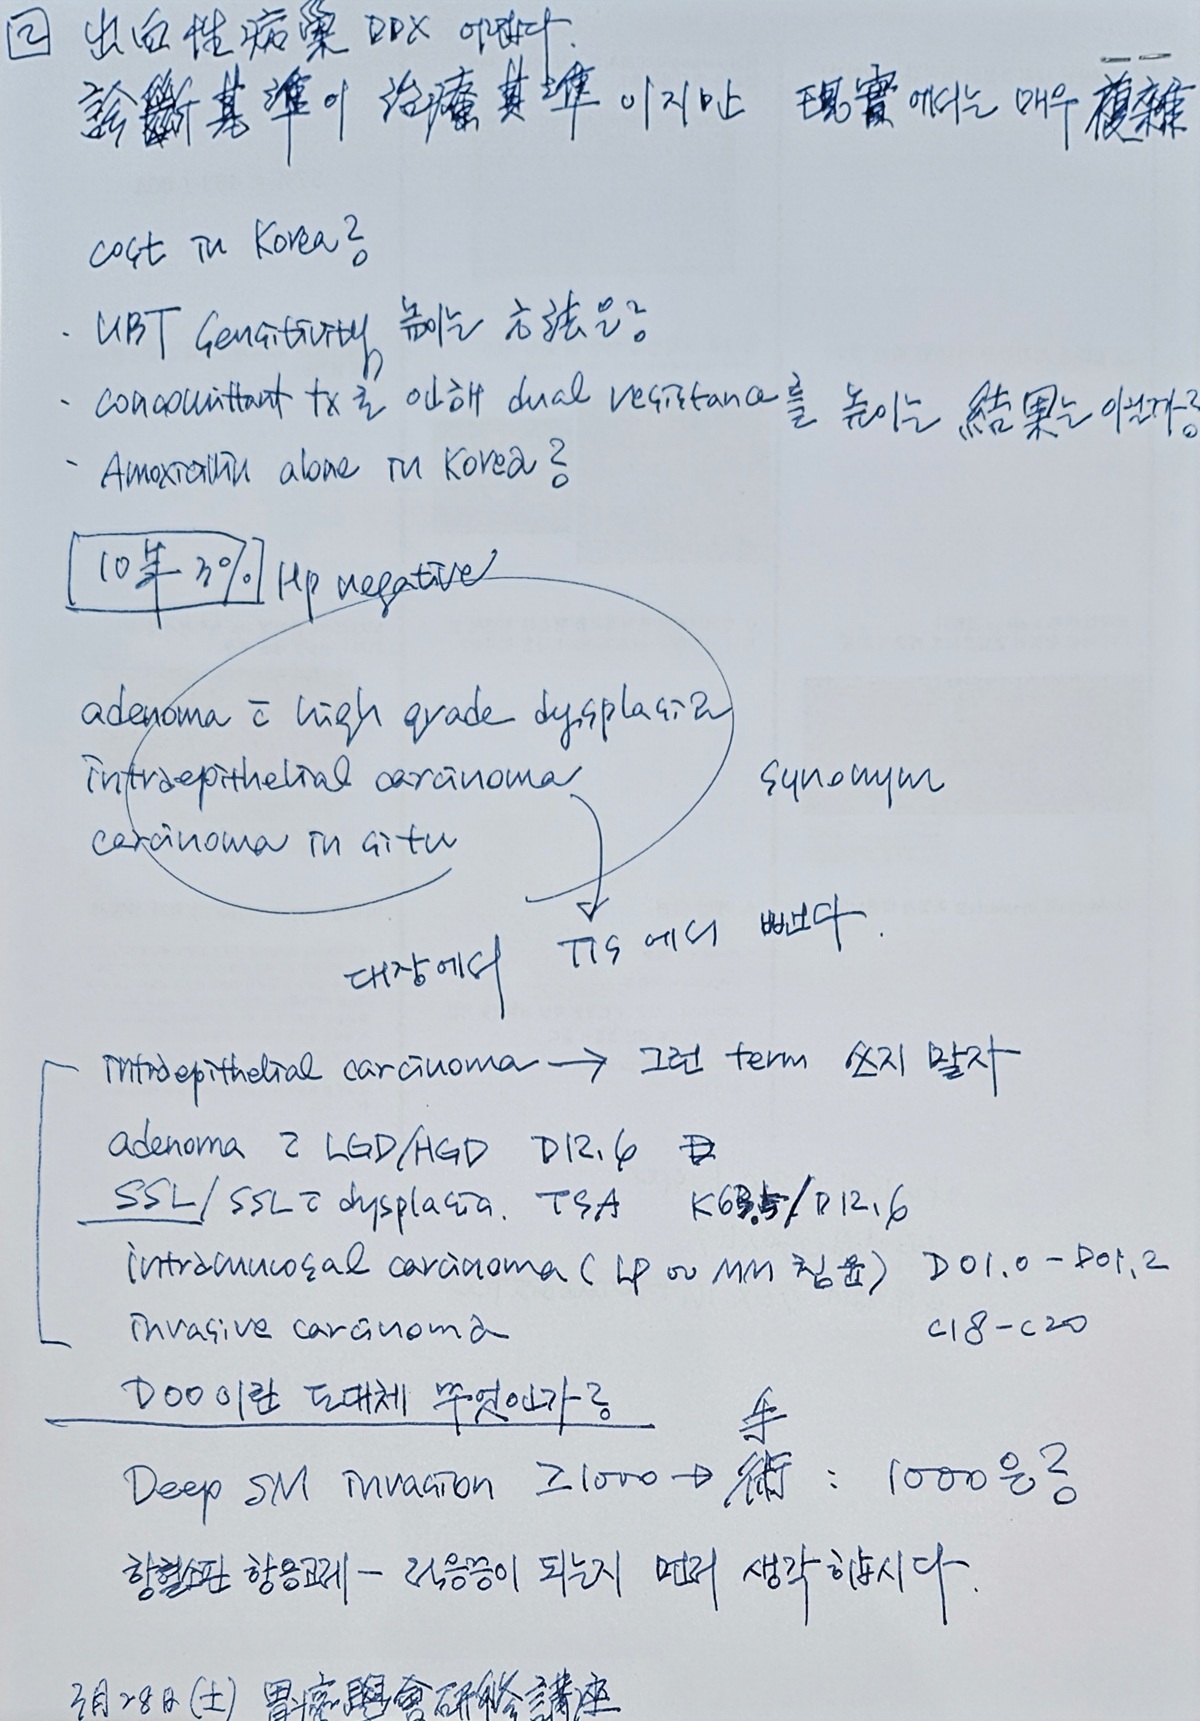 2 出血性病巢 DDX 어렵다.
診斷基準이 治療基準이지만 現實에서는 매우 複雜
cost in Korea?
· UBT Sensitivity 높이는 方法은?
· concomittant tx로 인해 dual resistance를 높이는 結果는 아닌가?
- Amoxicillin alone in Korea?
10年 3% Hp negative
adenoma c̄ high grade dysplasia
intraepithelial carcinoma synonym
carcinoma in situ
대장에서 TIS에서 뺐다.
intraepithelial carcinoma → 그런 term 쓰지 말자
adenoma c̄ LGD/HGD D12.6
SSL/SSL c̄ dysplasia. TSA K63.5/D12.6
intramucosal carcinoma (LP or MM 침윤) D01.0-D01.2
invasive carcinoma C18-C20
D00이란 도대체 무엇인가?
Deep SM invasion ≥1000 → 手術 : 1000은?
항혈소판 항응고제 - 적응증이 되는지 먼저 생각합시다.
3月28日(土) 胃癌學會硏修講座